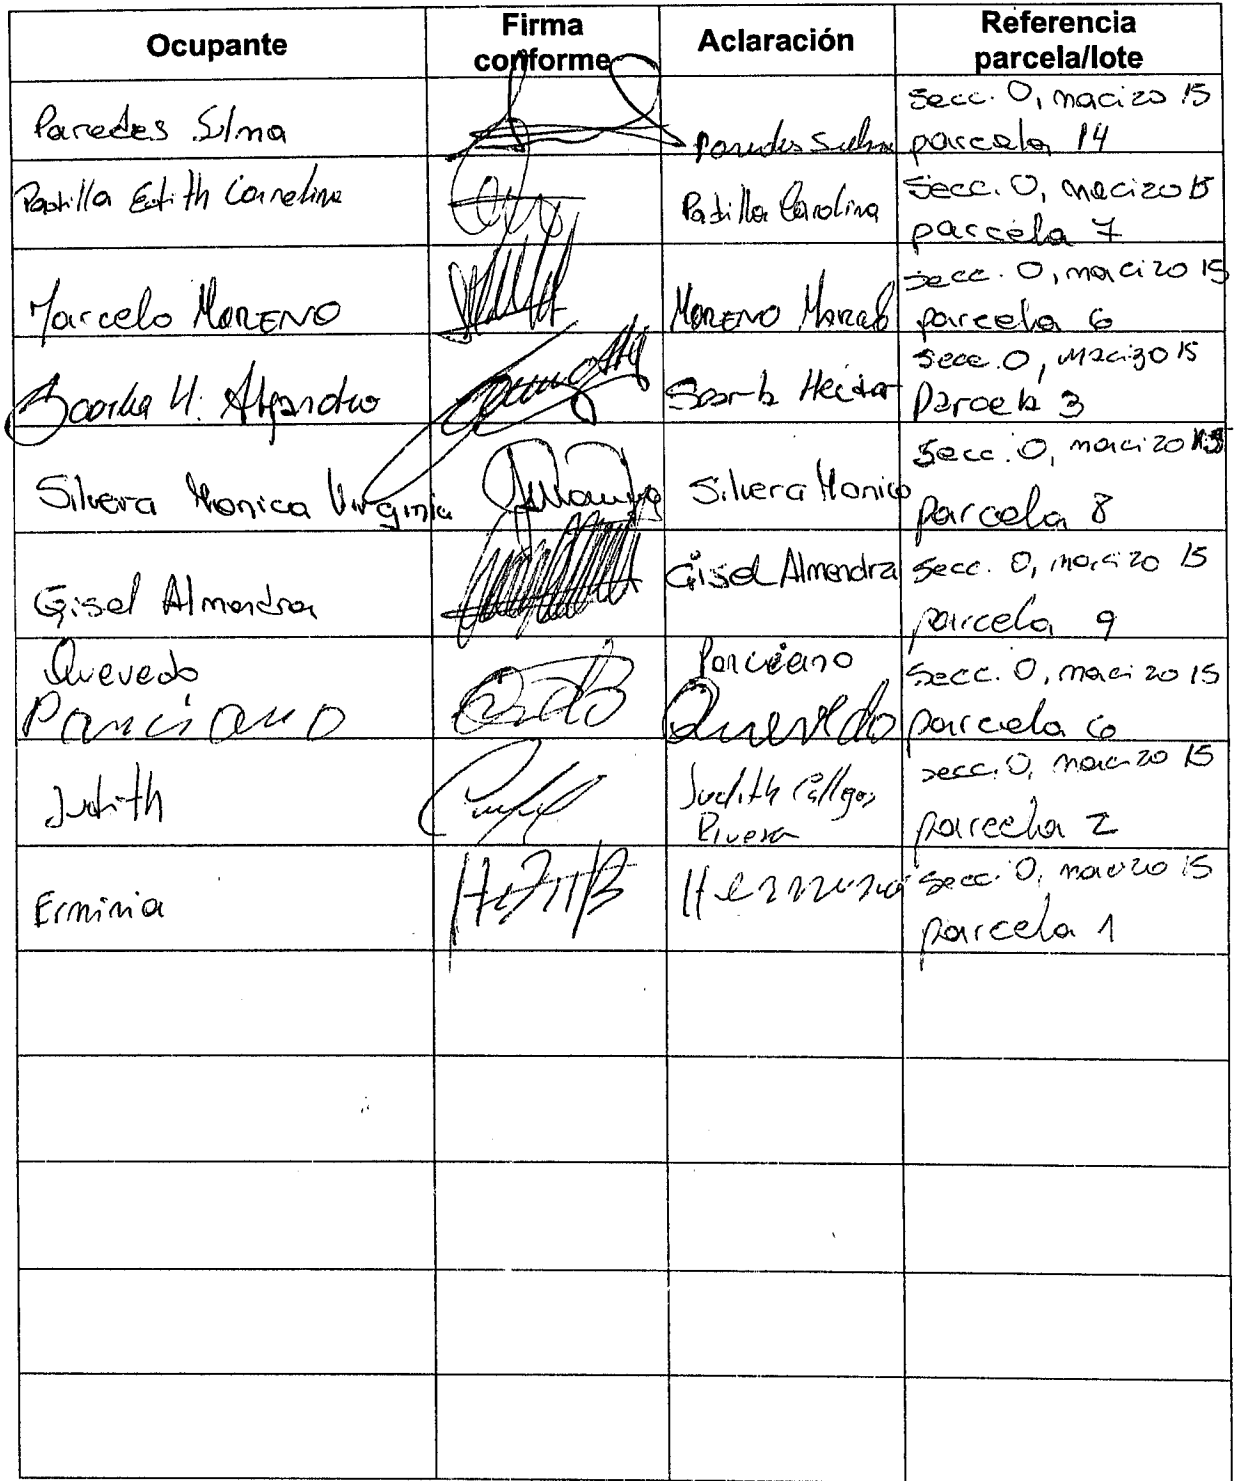 Ocupante
Firma conforme
Aclaración
Referencia parcela/lote
Paredes Silma
Paredes Silma
Secc. O, macizo 15
parcela 14
Padilla Edith Carolina
Padilla Carolina
Secc. O, macizo 15
parcela 7
Marcelo MORENO
MORENO Marcelo
Secc. O, macizo 15
parcela 6
H. Alejandro
Hector
Secc. O, macizo 15
Parcela 3
Silvera Monica Virginia
Silvera Monica
Secc. O, macizo 15
parcela 8
Gisel Almendra
Gisel Almendra
Secc. O, macizo 15
parcela 9
Quevedo
Ponciano
Ponciano
Quevedo
Secc. O, macizo 15
parcela 6
Judith
Judith Gallegos
Rivera
Secc. O, macizo 15
parcela 2
Erminia
Secc. O, macizo 15
parcela 1